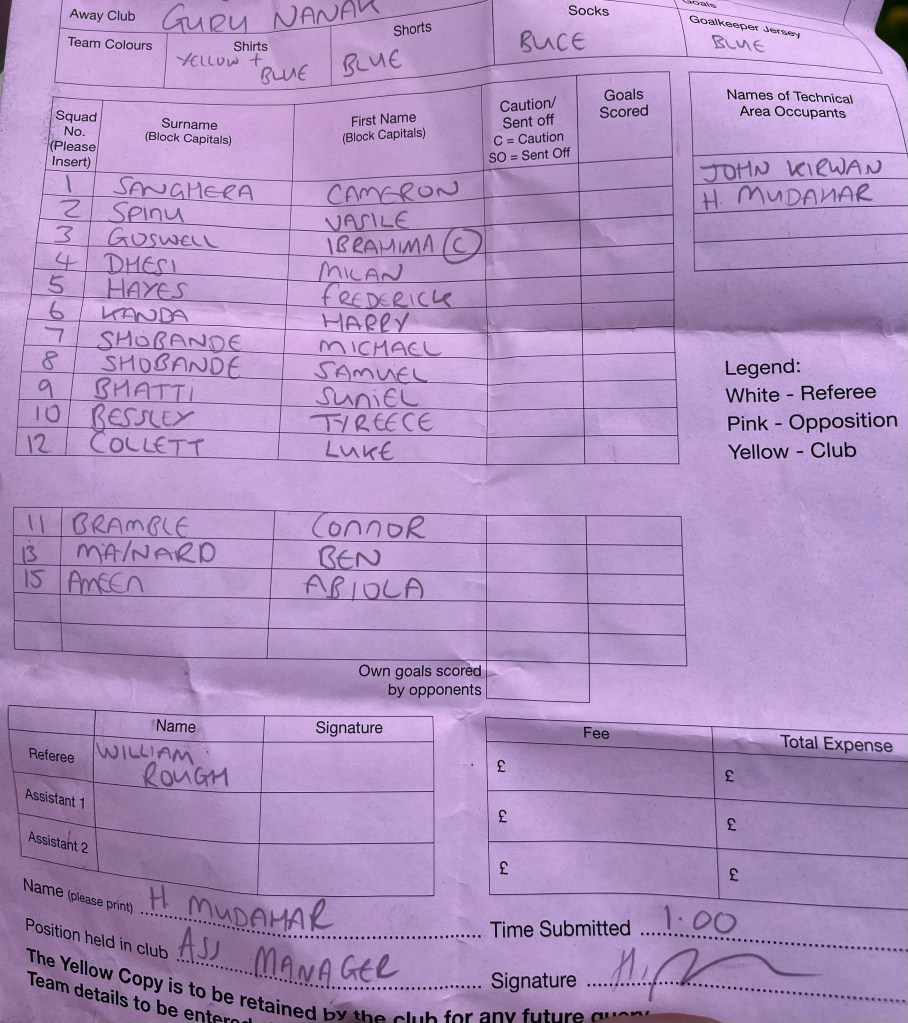 Away Club GURU NANAK
Goals
Team Colours Shirts YELLOW + BLUE Shorts BLUE Socks BLUE Goalkeeper Jersey BLUE
Squad No. (Please Insert) Surname (Block Capitals) First Name (Block Capitals) Caution/ Sent off C = Caution SO = Sent Off Goals Scored
1 SANGHERA CAMERON
2 SPINU VASILE
3 GOSWELL IBRAHIMA (C)
4 DHESI MILAN
5 HAYES FREDERICK
6 KANDA HARRY
7 SHOBANDE MICHAEL
8 SHOBANDE SAMUEL
9 BHATTI SUNIEL
10 BESSLEY TYREECE
12 COLLETT LUKE
11 BRAMBLE CONNOR
13 MAYNARD BEN
15 AMEEN ABIOLA
Own goals scored
by opponents
Names of Technical
Area Occupants
JOHN KIRWAN
H. MUDAHAR
Legend:
White - Referee
Pink - Opposition
Yellow - Club
Name Signature
Referee WILLIAM ROUGH
Assistant 1
Assistant 2
Fee Total Expense
£ £
£ £
£ £
Name (please print) H. MUDAHAR
Time Submitted 1.00
Position held in club ASS MANAGER
Signature
The Yellow Copy is to be retained by the club for any future query
Team details to be entered